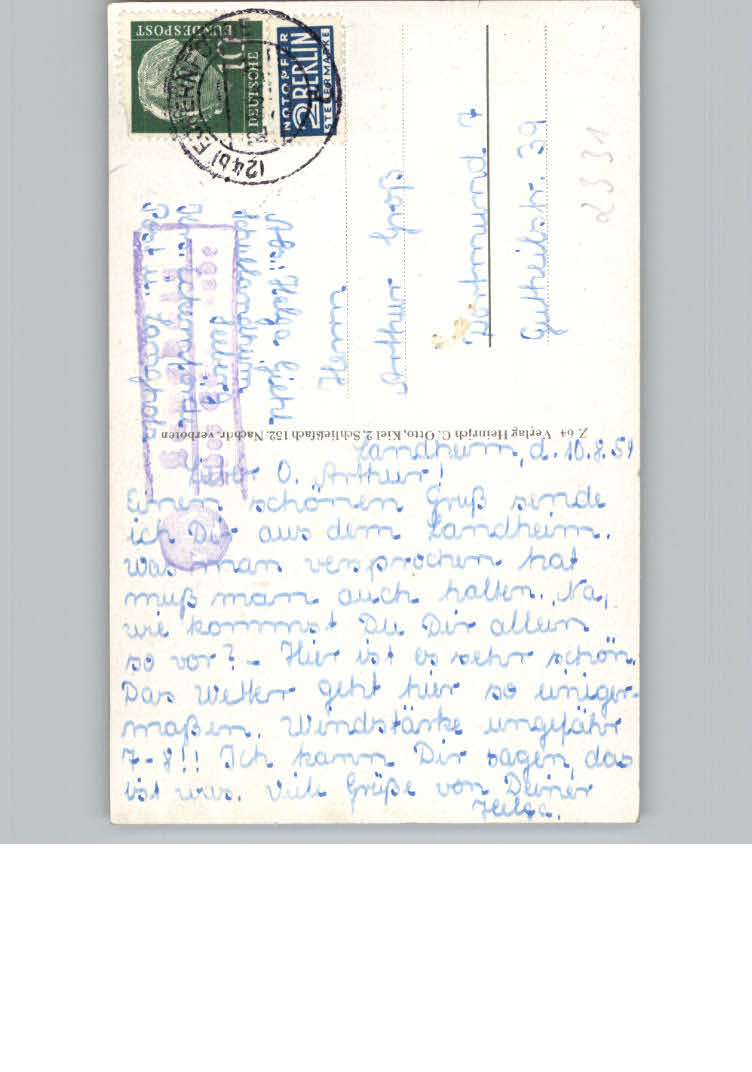 Landheim, d. 10.8.54
Lieber O. Arthur!
Einen schönen Gruß sende
ich Dir aus dem Landheim.
was man versprochen hat
muß man auch halten. Na,
wie kommst Du Dir allein
so vor? - Hier ist es sehr schön.
Das Wetter geht hier so einiger-
maßen. Windstärke ungefähr
7-8!! Ich kann Dir sagen, das
ist was. Viele Grüße von Deiner
Helga.
Z. 64 Verlag Heinrich C. Otto, Kiel 2, Schließfach 152. Nachdr. verboten
Abs.: Helga
Schullandheim
Seeburg
Herrn
Arthur Groß
Dortmund 7
Gutheilstr. 39
2331
DEUTSCHE
BUNDESPOST
10
NOTOPFER
2 BERLIN
STEUERMARKE
(24b)